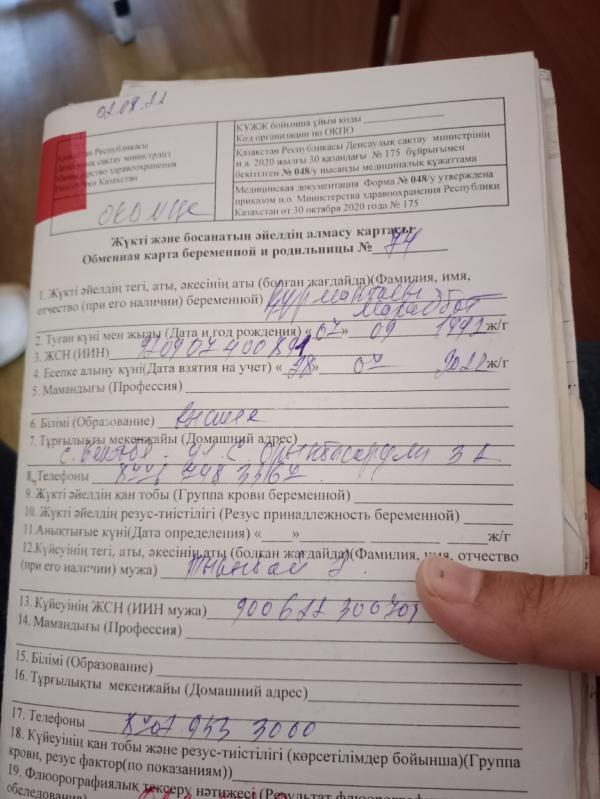 02.08.22
Қазақстан Республикасы
Денсаулық сақтау министрлігі
Министерство здравоохранения
Республики Казахстан
ҚҰЖЖ бойынша ұйым коды
Код организации по ОКПО
Қазақстан Республикасы Денсаулық сақтау министрінің
м.а. 2020 жылғы 30 қазандағы № 175 бұйрығымен
бекітілген № 048/у нысанды медициналық құжаттама
Медицинская документация Форма № 048/у утверждена
приказом и.о. Министерства здравоохранения Республики
Казахстан от 30 октября 2020 года № 175
Жүкті және босанатын әйелдің алмасу картасы
Обменная карта беременной и родильницы № 74
1. Жүкті әйелдің тегі, аты, әкесінің аты (болған жағдайда)(Фамилия, имя,
отчество (при его наличии) беременной)
2. Туған күні мен жылы (Дата и год рождения) «07» 09 1992 ж/г
3. ЖСН (ИИН)
4. Есепке алыну күні(Дата взятия на учет) «28» 07 2022 ж/г
5. Мамандығы (Профессия)
6. Білімі (Образование) высшее
7. Тұрғылықты мекенжайы (Домашний адрес)
8. Телефоны
9. Жүкті әйелдің қан тобы (Группа крови беременной)
10. Жүкті әйелдің резус-тиістілігі (Резус принадлежность беременной)
11.Анықтығые күні(Дата определения) «___» ж/г
12.Күйеуінің тегі, аты, әкесінің аты (болған жағдайда)(Фамилия, имя, отчество
(при его наличии) мужа)
13. Күйеуінің ЖСН (ИИН мужа)
14. Мамандығы (Профессия)
15. Білімі (Образование)
16. Тұрғылықты мекенжайы (Домашний адрес)
17. Телефоны 8702 953 3000
18. Күйеуінің қан тобы және резус-тиістілігі (көрсетілімдер бойынша)(Группа
крови, резус фактор(по показаниям))
19. Флюорографиялық тексеру нәтижесі (Результат
обследования)